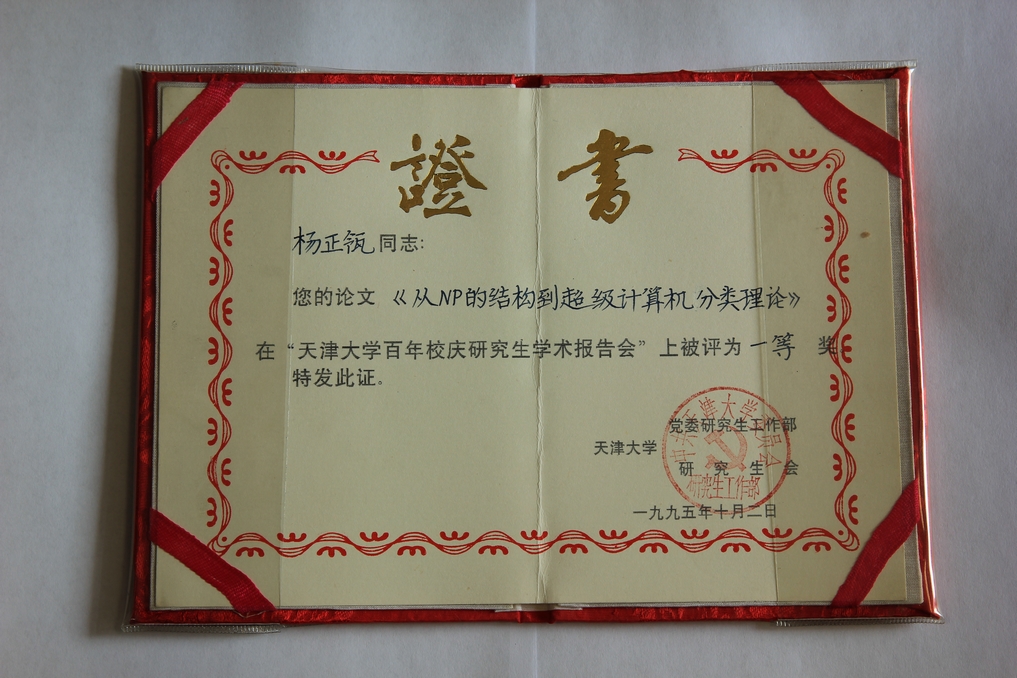 證書
杨正瓴同志:
您的论文《从NP的结构到超级计算机分类理论》
在“天津大学百年校庆研究生学术报告会”上被评为一等奖
特发此证。
党委研究生工作部
天津大学
研究生会
一九九五年十月二日
中共天津大学委员会
研究生工作部